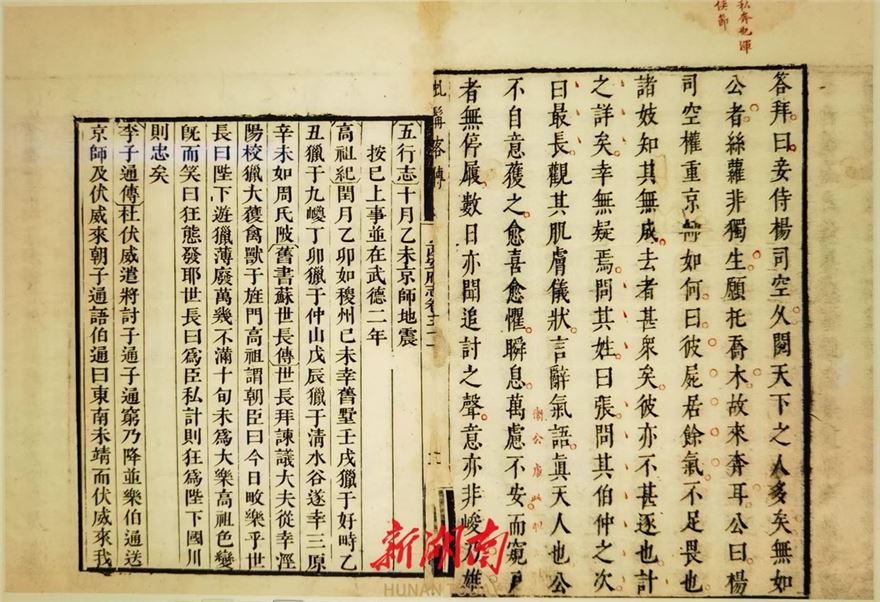 私奔也渾
答拜曰妾侍楊司空久閱天下之人多矣無如
公者絲蘿非獨生願托喬木故來奔耳公曰楊
司空權重京師如何曰彼屍居餘氣不足畏也
諸妓知其無成去者甚衆矣彼亦不甚逐也計
之詳矣幸無疑焉問其姓曰張問其伯仲之次
曰最長觀其肌膚儀狀言辭氣語真天人也公
不自意獲之愈喜愈懼瞬息萬慮不安而窺戶
者無停屨數日亦聞追討之聲意亦非峻乃雄
虬髯客傳
五行志十月乙未京師地震
按已上事並在武德二年
高祖紀閏月乙卯如稷州己未幸舊墅壬戌獵于好畤乙
丑獵于九嵕丁卯獵于仲山戊辰獵于清水谷遂幸三原
辛未如周氏陂舊書蘇世長傳世長拜諫議大夫從幸涇
陽校獵大獲禽獸于旌門高祖謂朝臣曰今日畋樂乎世
長曰陛下遊獵薄廢萬幾不滿十旬未爲大樂高祖色變
旣而笑曰狂態發耶世長曰爲臣私計則狂爲陛下國川
則忠矣
李子通傳杜伏威遣將討子通子通窮乃降並樂伯通送
京師及伏威來朝子通語伯通曰東南未靖而伏威來我
新湖南
HUNAN